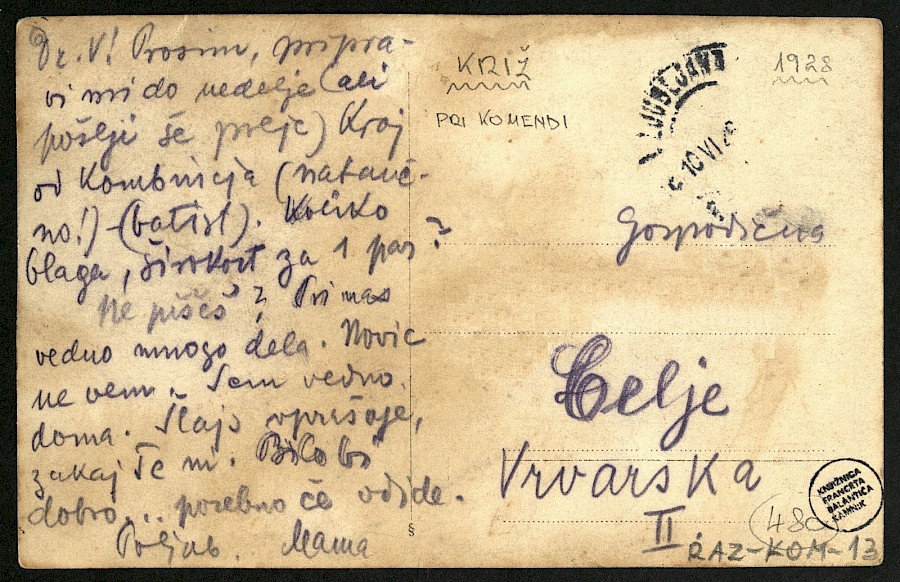 Dr. V! Prosim, pripra-
vi mi do nedelje (ali
pošlji še preje) Kroj
od Kombineja (natanč-
no!) (batist). Koliko
blaga, širokost za 1 par?
Ne pišeš? Pri nas
vedno mnogo dela. Novic
ne vem. Sem vedno
doma. Šlajs vprašuje,
zakaj Te ni. Bilo bi
dobro... posebno če odide.
Poljub. Mama
KRIŽ
PRI KOMENDI
1928
LJUBLJANA
10 VI 28
Gospodična
Celje
Vrvarska
II
§
480
KNJIŽNICA
FRANCETA
BALANTIČA
KAMNIK
RAZ-KOM-13